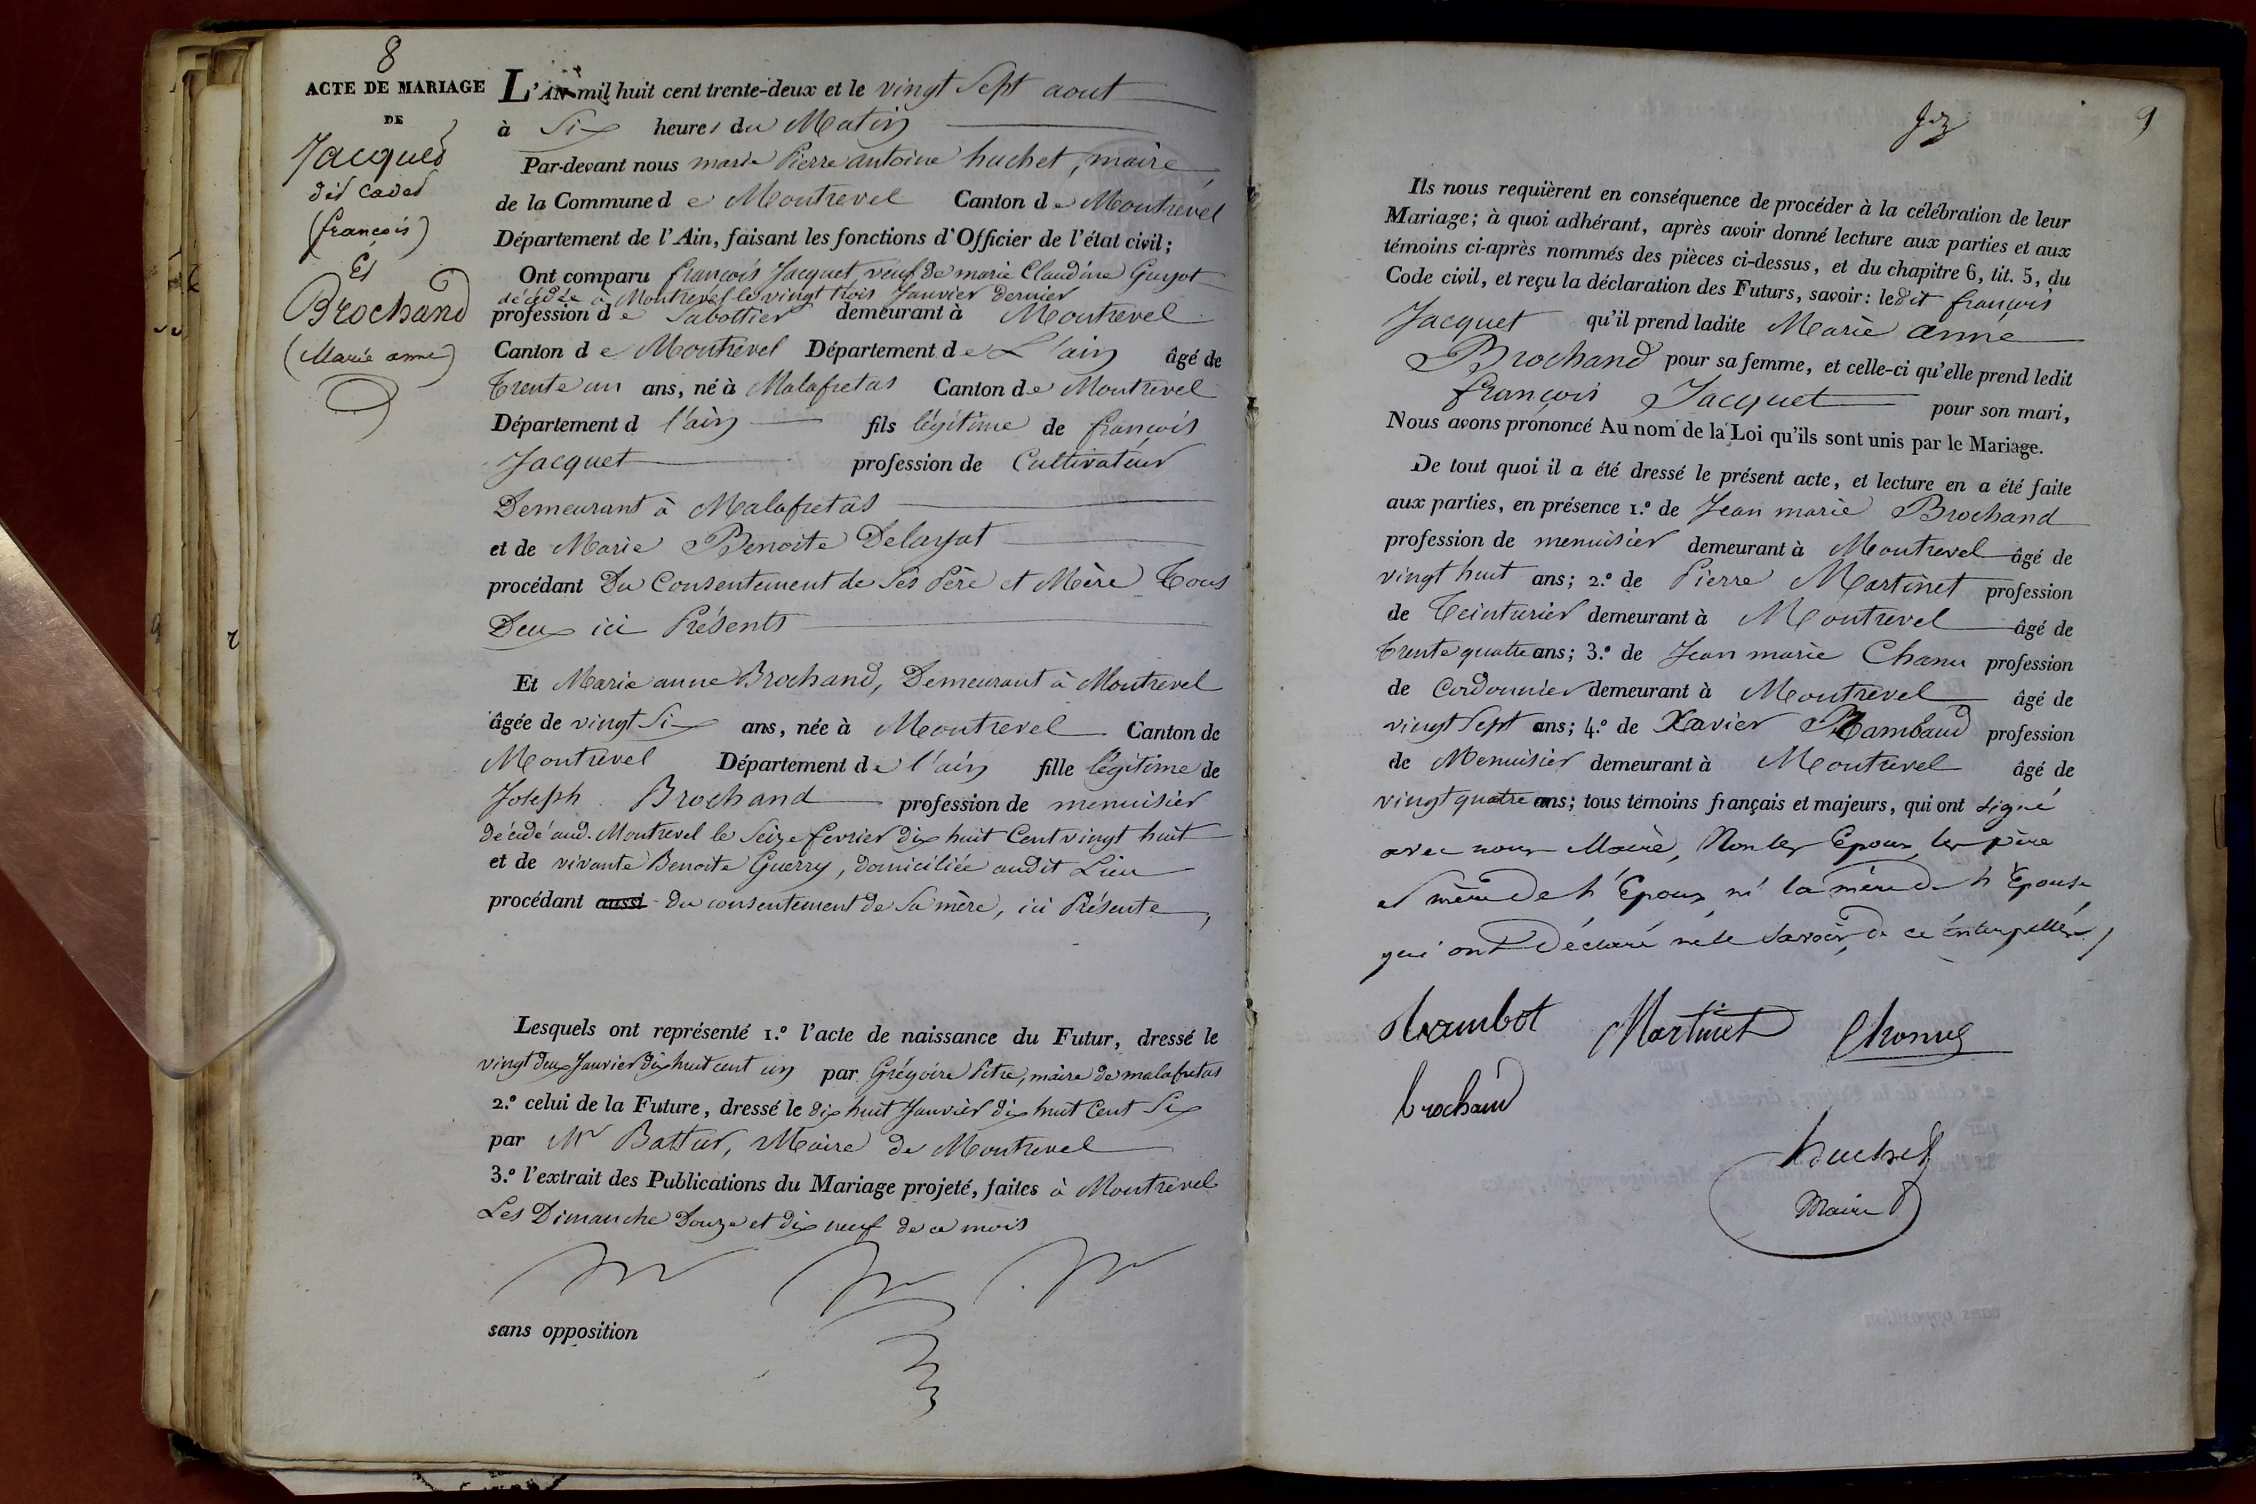 8
ACTE DE MARIAGE
DE
Jacquet
dit Cadet
(françois)
Et
Brochand
(Marie anne)
L'AN mil huit cent trente-deux et le vingt Sept aout
à Six heures du Matin
Par-devant nous marie Pierre antoine huchet, maire,
de la Commune de Montrevel Canton de Montrevel
Département de l'Ain, faisant les fonctions d'Officier de l'état civil;
Ont comparu françois Jacquet, veuf de marie Claudine Guyot
décédée à Montrevel le vingt trois Janvier dernier
profession de Sabottier demeurant à Montrevel
Canton de Montrevel Département de L'ain âgé de
Trente un ans, né à Malafretas Canton de Montrevel
Département d l'ain fils légitime de françois
Jacquet profession de Cultivateur
Demeurant à Malafretas
et de Marie Benoite Delayat
procédant Du Consentement de Ses Père et Mère Tous
Deux ici Présents
Et Marie anne Brochand, Demeurant à Montrevel
âgée de vingt Six ans, née à Montrevel Canton de
Montrevel Département de l'ain fille légitime de
Joseph Brochand profession de menuisier
décédé aud. Montrevel le Seize fevrier dix huit Cent vingt huit
et de vivante Benoite Guerry, domiciliée audit Lieu
procédant aussi du consentement de Sa mère, ici Présente,
Lesquels ont représenté 1.º l'acte de naissance du Futur, dressé le
vingt deux Janvier dix huit cent un par Grégoire Pitre, maire de malafretas
2.º celui de la Future, dressé le dix huit Janvier dix huit Cent Six
par Mr Battur, Maire de Montrevel
3.º l'extrait des Publications du Mariage projeté, faites à Montrevel
Les Dimanche Douze et dix neuf de ce mois
sans opposition
9
Ils nous requièrent en conséquence de procéder à la célébration de leur
Mariage; à quoi adhérant, après avoir donné lecture aux parties et aux
témoins ci-après nommés des pièces ci-dessus, et du chapitre 6, tit. 5, du
Code civil, et reçu la déclaration des Futurs, savoir: ledit françois
Jacquet qu'il prend ladite Marie anne
Brochand pour sa femme, et celle-ci qu'elle prend ledit
françois Jacquet pour son mari,
Nous avons prononcé Au nom de la Loi qu'ils sont unis par le Mariage.
De tout quoi il a été dressé le présent acte, et lecture en a été faite
aux parties, en présence 1.º de Jean marie Brochand
profession de menuisier demeurant à Montrevel âgé de
vingt huit ans; 2.º de Pierre Martinet profession
de Teinturier demeurant à Montrevel âgé de
Trente quatre ans; 3.º de Jean marie Chanu profession
de Cordonnier demeurant à Montrevel âgé de
vingt Sept ans; 4.º de Xavier Rambaud profession
de Menuisier demeurant à Montrevel âgé de
vingt quatre ans; tous témoins français et majeurs, qui ont signé
avec nous Maire, Non les Epoux, les père
et mère de l'Epoux, ni la mère de l'Epouse
qui ont Déclaré ne le Savoir, de ce interpellés,
Rambot Martinet Chanu
brochand
huchet
Maire